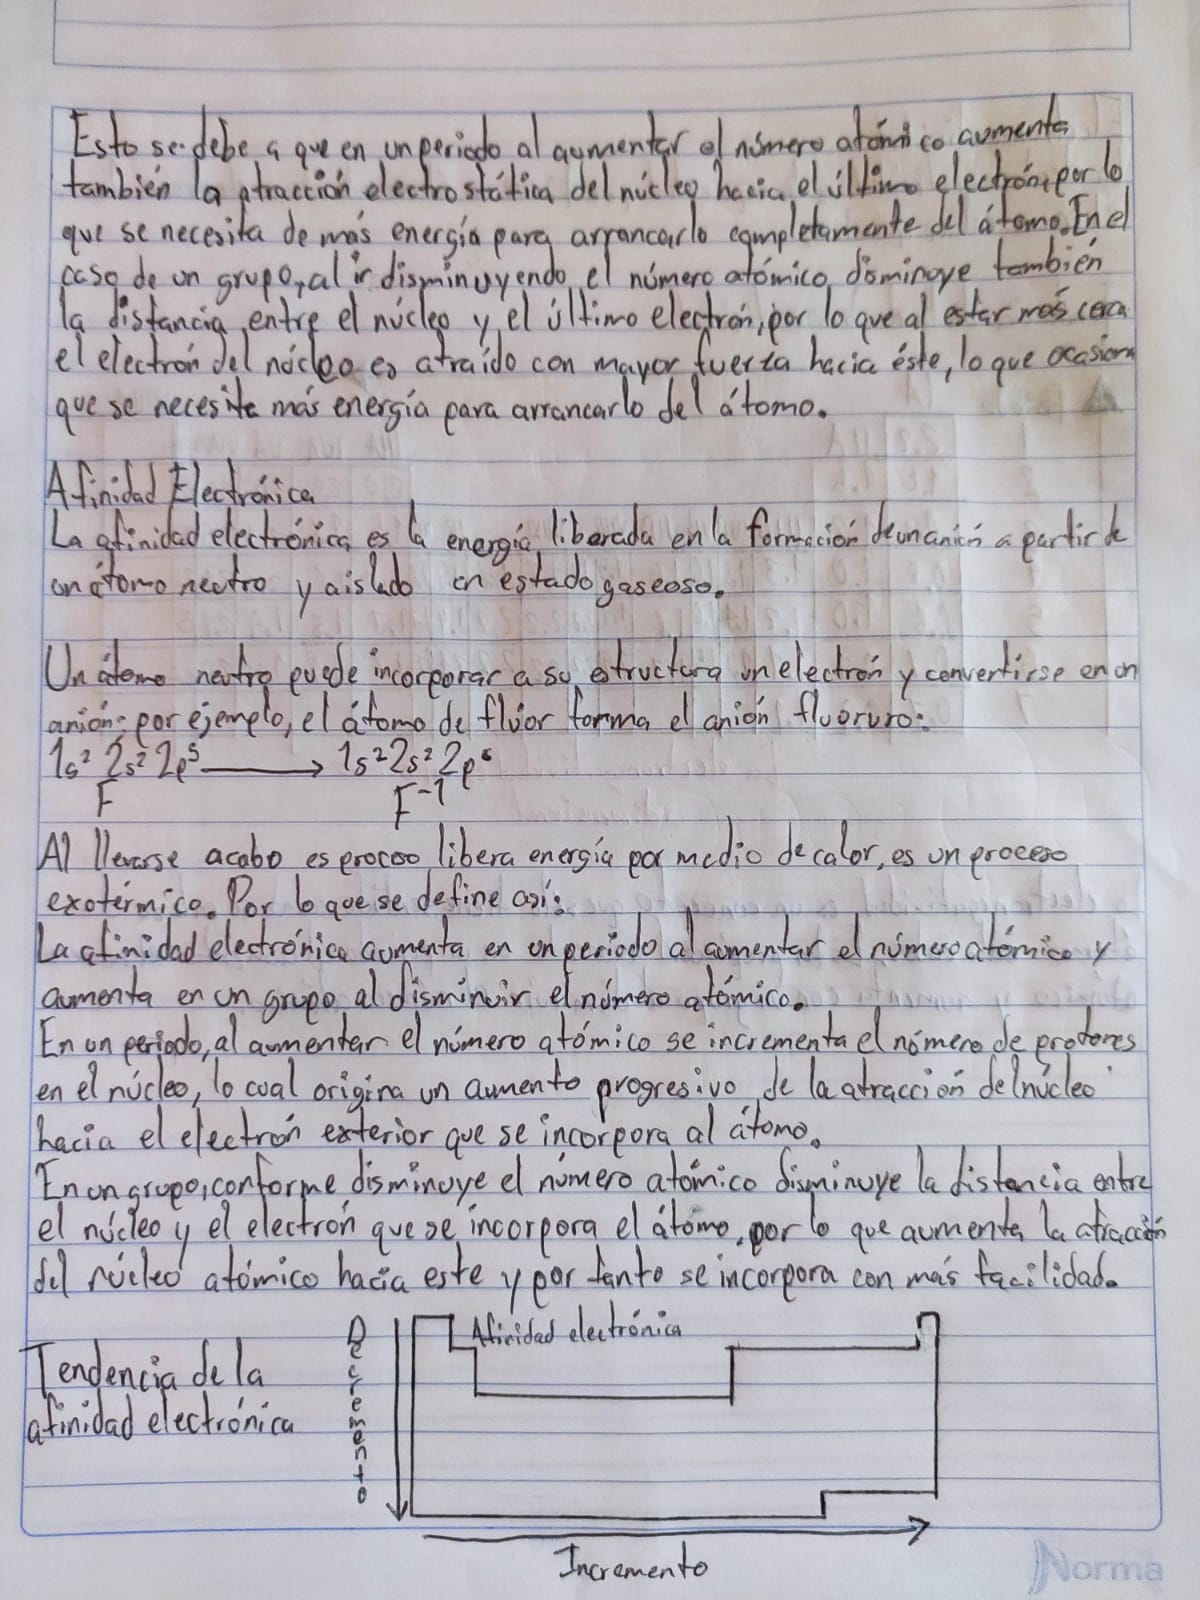 Esto se debe a que en un periodo al aumentar el número atómico aumenta
también la atracción electrostática del núcleo hacia el último electrón, por lo
que se necesita de más energía para arrancarlo completamente del átomo. En el
caso de un grupo, al ir disminuyendo el número atómico disminuye también
la distancia entre el núcleo y el último electrón, por lo que al estar más cerca
el electrón del núcleo es atraído con mayor fuerza hacia éste, lo que ocasiona
que se necesite más energía para arrancarlo del átomo.
Afinidad Electrónica
La afinidad electrónica es la energía liberada en la formación de un anión a partir de
un átomo neutro y aislado en estado gaseoso.
Un átomo neutro puede incorporar a su estructura un electrón y convertirse en un
anión: por ejemplo, el átomo de flúor forma el anión fluoruro:
1s² 2s² 2p⁵ → 1s² 2s² 2p⁶
F F⁻¹
Al llevarse acabo es proceso libera energía por medio de calor, es un proceso
exotérmico. Por lo que se define así:
La afinidad electrónica aumenta en un periodo al aumentar el número atómico y
aumenta en un grupo al disminuir el número atómico.
En un periodo, al aumentar el número atómico se incrementa el número de protones
en el núcleo, lo cual origina un aumento progresivo de la atracción del núcleo
hacia el electrón exterior que se incorpora al átomo.
En un grupo, conforme disminuye el número atómico disminuye la distancia entre
el núcleo y el electrón que se incorpora el átomo, por lo que aumenta la atracción
del núcleo atómico hacia este y por tanto se incorpora con más facilidad.
Tendencia de la
afinidad electrónica
Decremento
Afinidad electrónica
Incremento
Norma